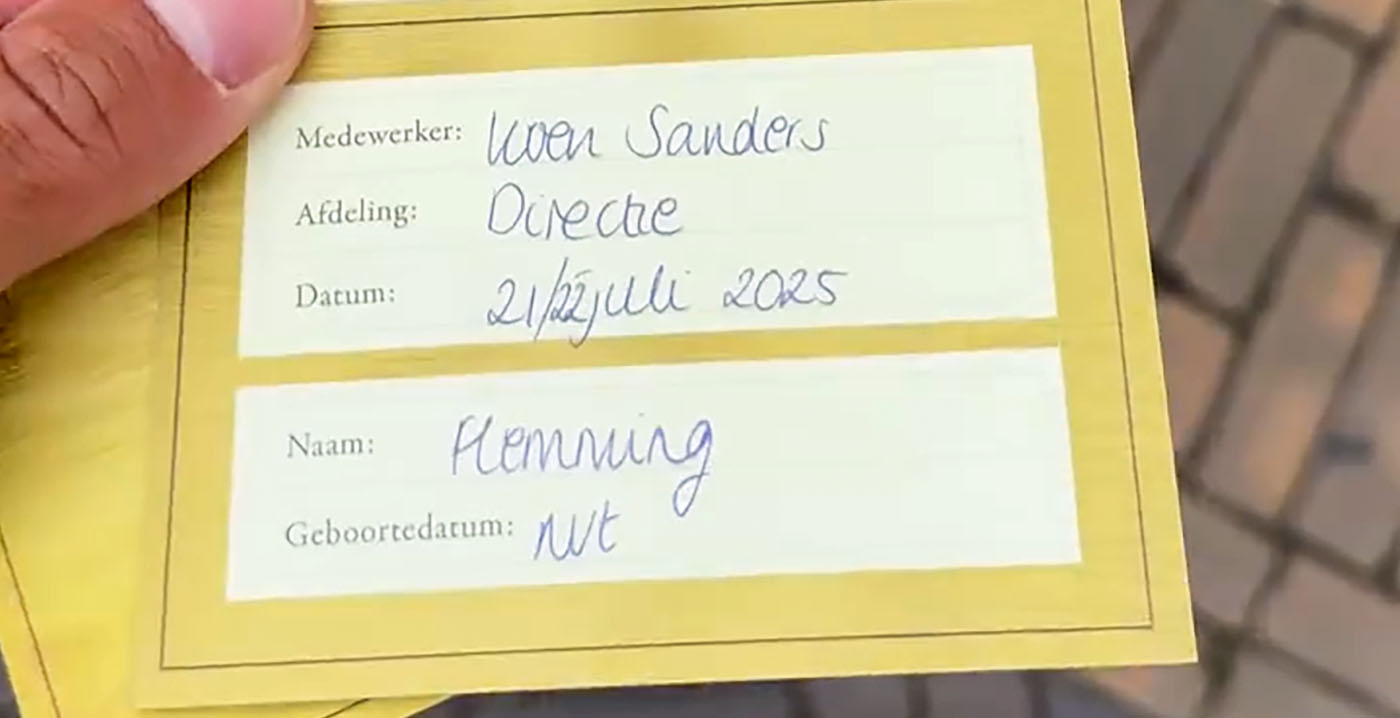 Medewerker: Koen Sanders
Afdeling: Directie
Datum: 21/22 juli 2025
Naam: Flemming
Geboortedatum: nvt